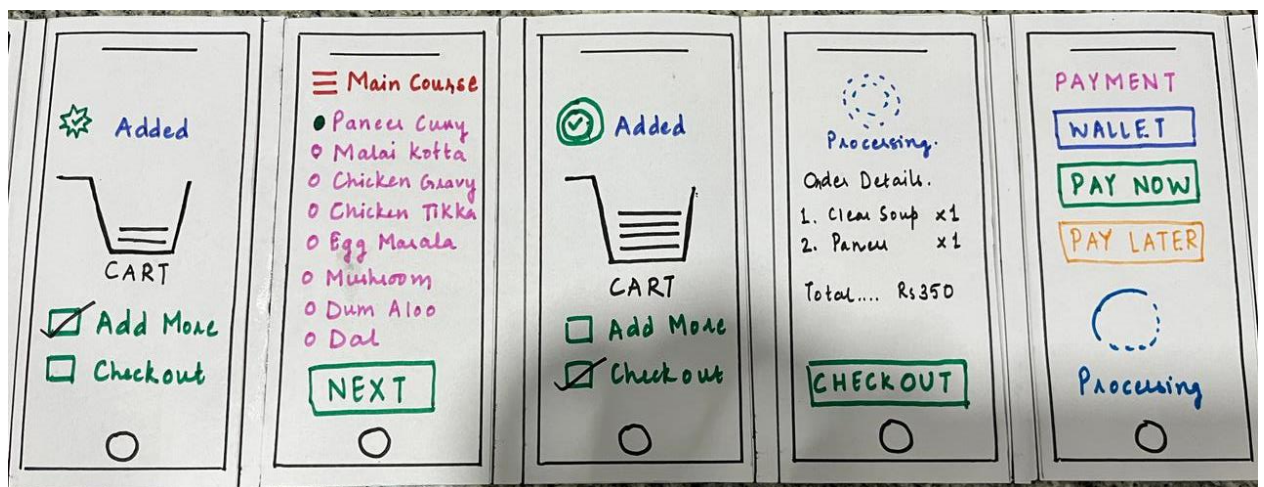 Added
CART
Add More
Checkout
Main Course
Paneer Curry
Malai Kofta
Chicken Gravy
Chicken Tikka
Egg Masala
Mushroom
Dum Aloo
Dal
NEXT
Added
CART
Add More
Checkout
Processing.
Order Details.
1. Clear Soup x1
2. Paneer x1
Total.... Rs 350
CHECKOUT
PAYMENT
WALLET
PAY NOW
PAY LATER
Processing